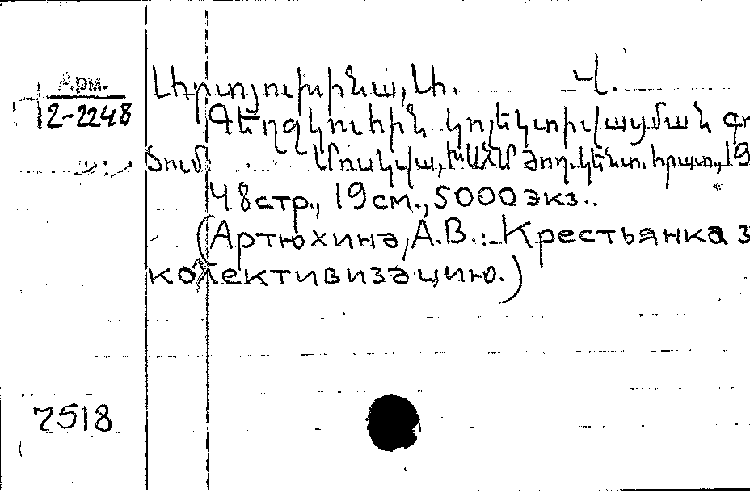 Арм.
2-2248
Արտյուխինա, Ա. Վ.
Գեղջկուհին կոլեկտիվացման գո
ծում Մոսկվա, ԽՍՀՄ Ժող. Կենտ. հրատ., 19
48стр., 19см., 5000экз..
(Артюхина, А.В.:-Крестьянка з
колективизацию.)
7518